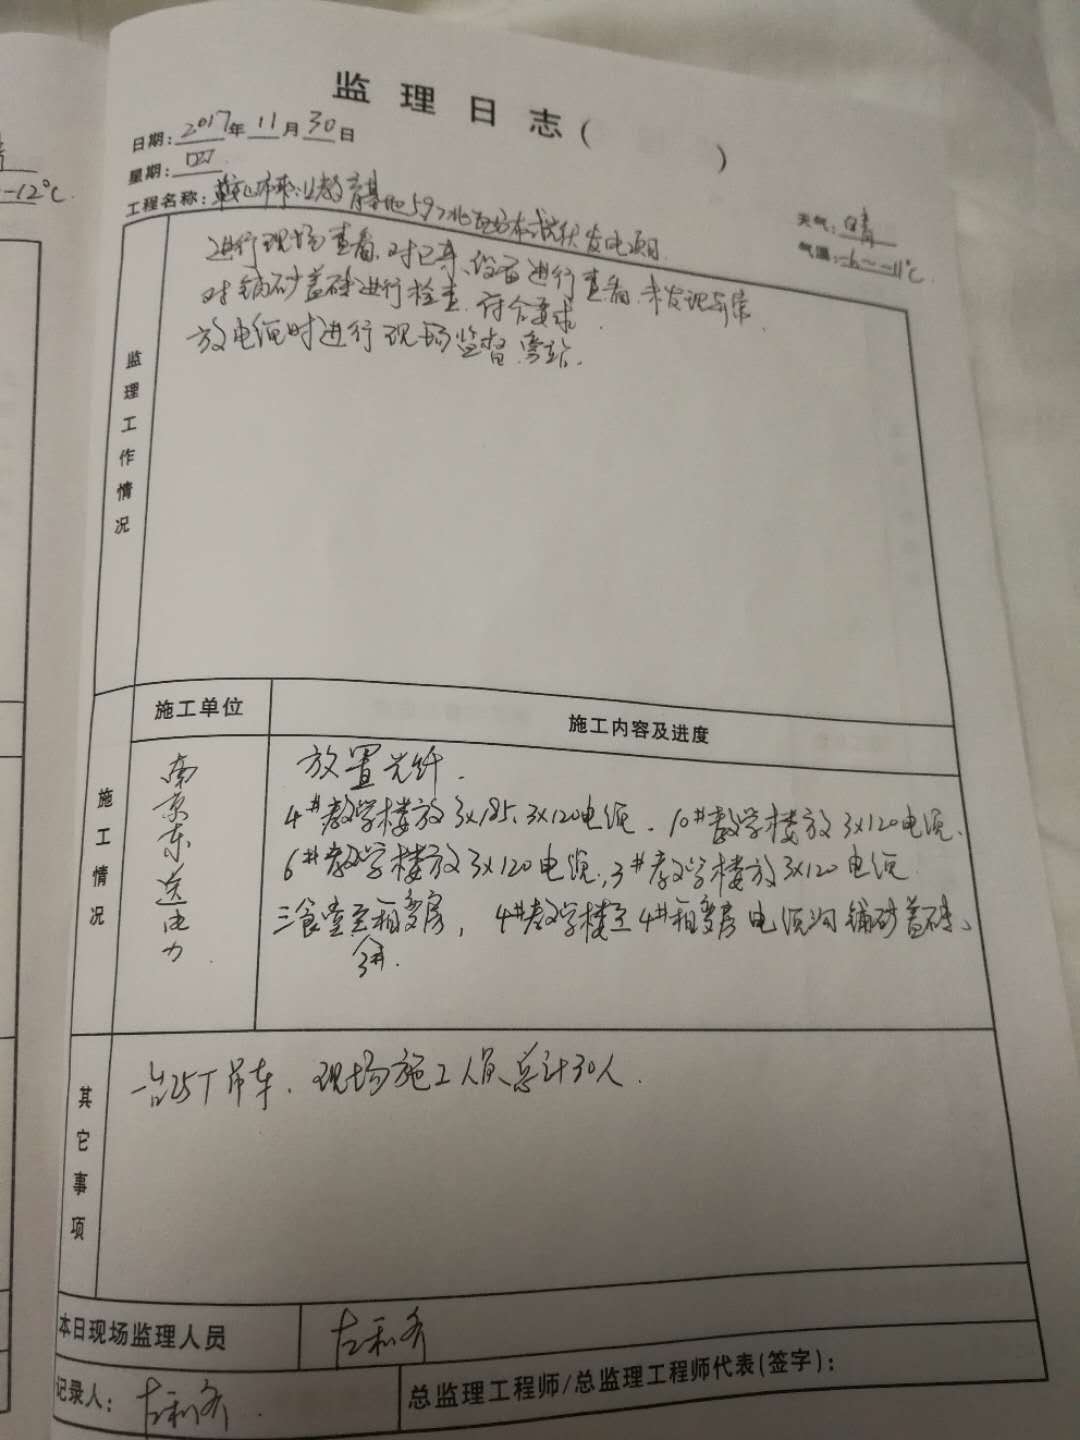 监理日志（ ）
日期：2017年11月30日
星期：四
天气：晴
工程名称：鞍山市职业教育基地5.97兆瓦分布式光伏发电项目
气温：-6～-11℃
-12℃
监理工作情况
进行现场查看，对已弄设备进行查看，未发现异常。
对铺砂盖砖进行检查，符合要求。
放电缆时进行现场监督旁站。
施工情况
施工单位
施工内容及进度
南京东送电力
放置光纤。
4#教学楼放3x185、3x120电缆。10#教学楼放3x120电缆、
6#教学楼放3x120电缆，3#教学楼放3x120电缆
三食堂至箱变房，4#教学楼至4#箱变房电缆沟铺砂盖砖、
其它事项
一台25T吊车，现场施工人员总计30人。
本日现场监理人员
记录人：
总监理工程师/总监理工程师代表(签字)：